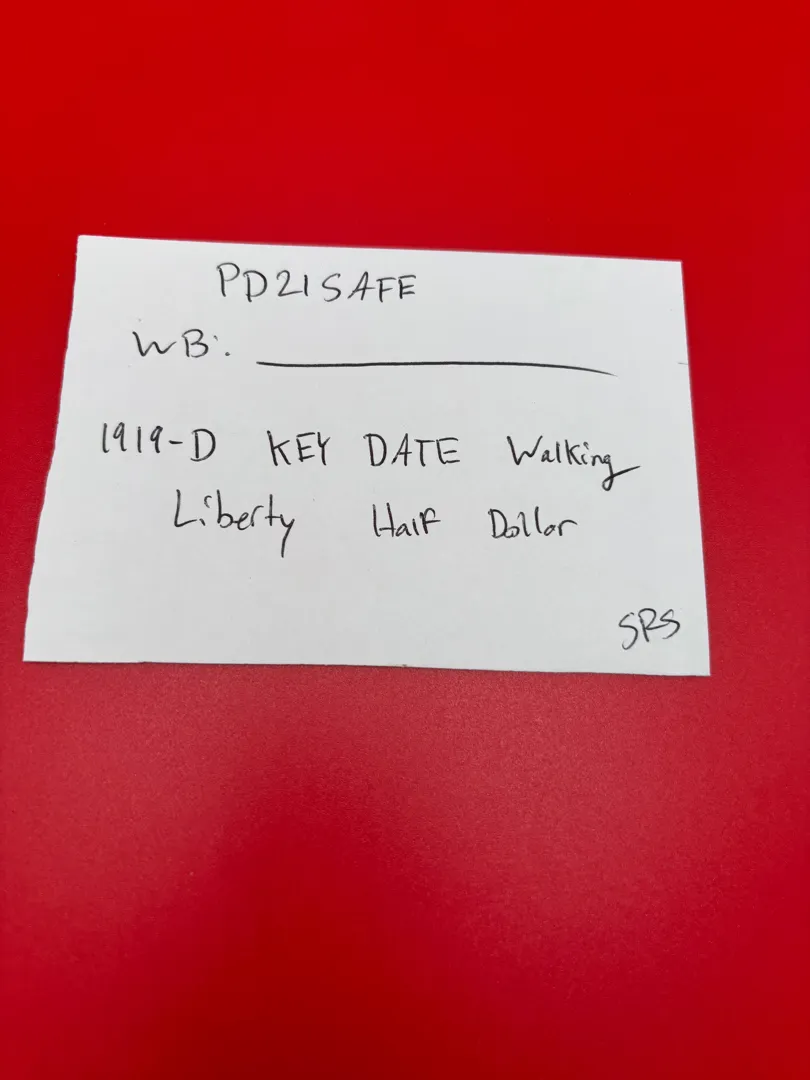 PD21SAFE
WB:
1919-D KEY DATE Walking
Liberty Half Dollar
SRS